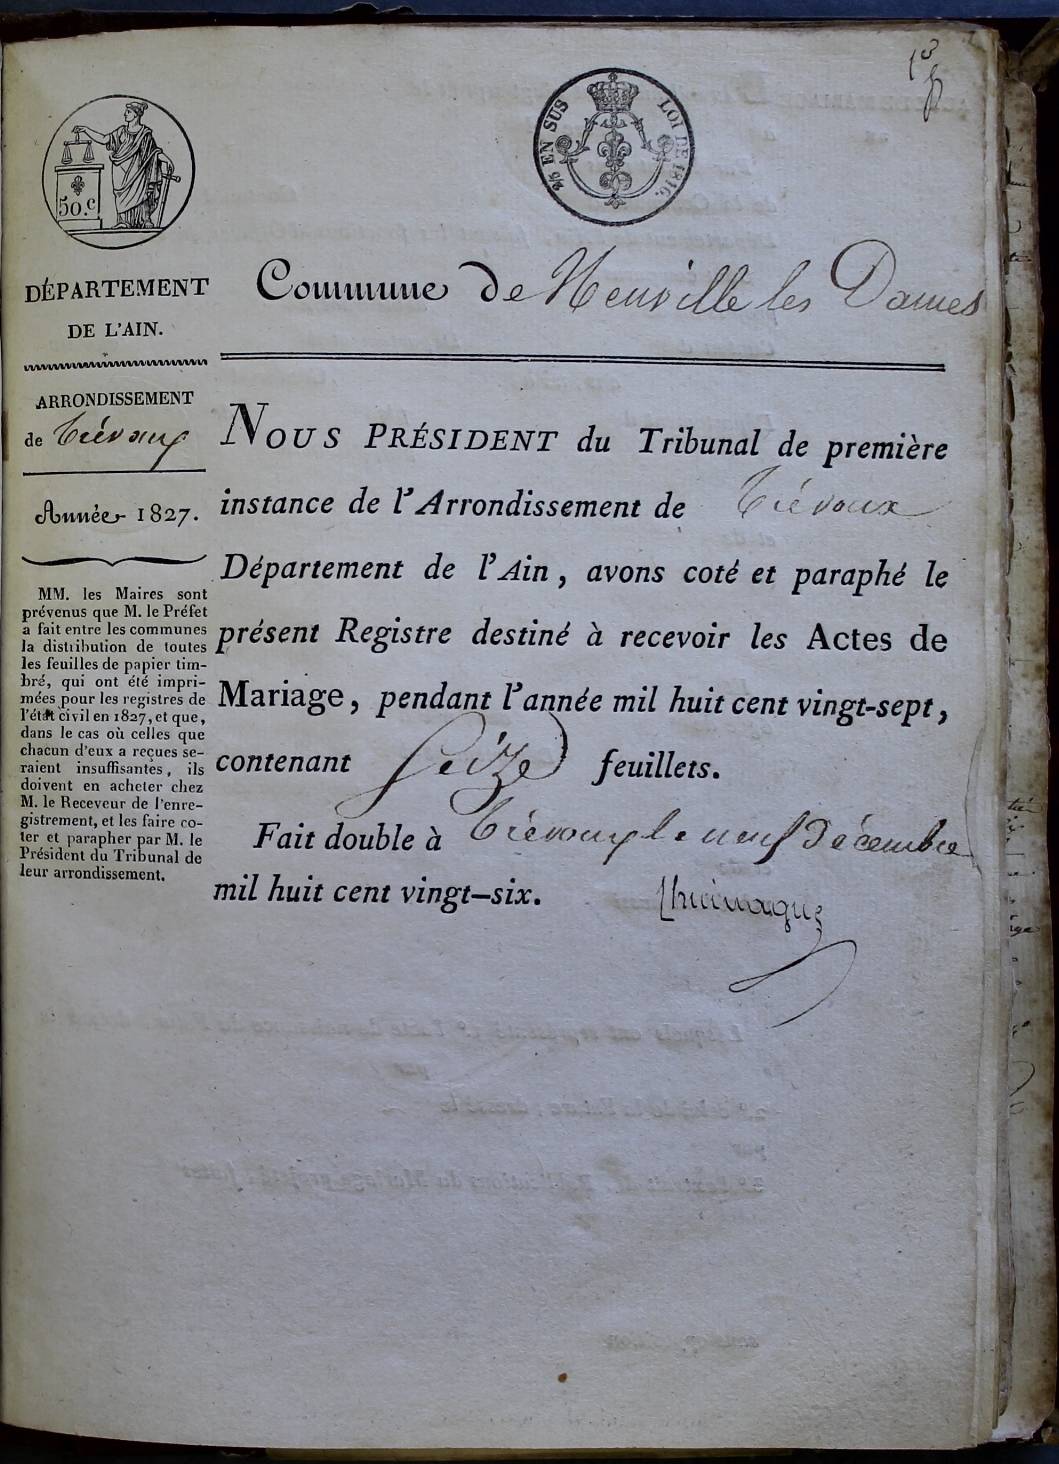 50.c
2/5 EN SUS LOI DE 1816.
DÉPARTEMENT
DE L'AIN.
ARRONDISSEMENT
de Trévoux
Année 1827.
MM. les Maires sont
prévenus que M. le Préfet
a fait entre les communes
la distribution de toutes
les feuilles de papier tim-
bré, qui ont été impri-
mées pour les registres de
l'état civil en 1827, et que,
dans le cas où celles que
chacun d'eux a reçues se-
raient insuffisantes, ils
doivent en acheter chez
M. le Receveur de l'enre-
gistrement, et les faire co-
ter et parapher par M. le
Président du Tribunal de
leur arrondissement.
Commune de Neuville les Dames
NOUS PRÉSIDENT du Tribunal de première
instance de l'Arrondissement de Trévoux
Département de l'Ain, avons coté et paraphé le
présent Registre destiné à recevoir les Actes de
Mariage, pendant l'année mil huit cent vingt-sept,
contenant seize feuillets.
Fait double à Trévoux le neuf Décembre
mil huit cent vingt-six.